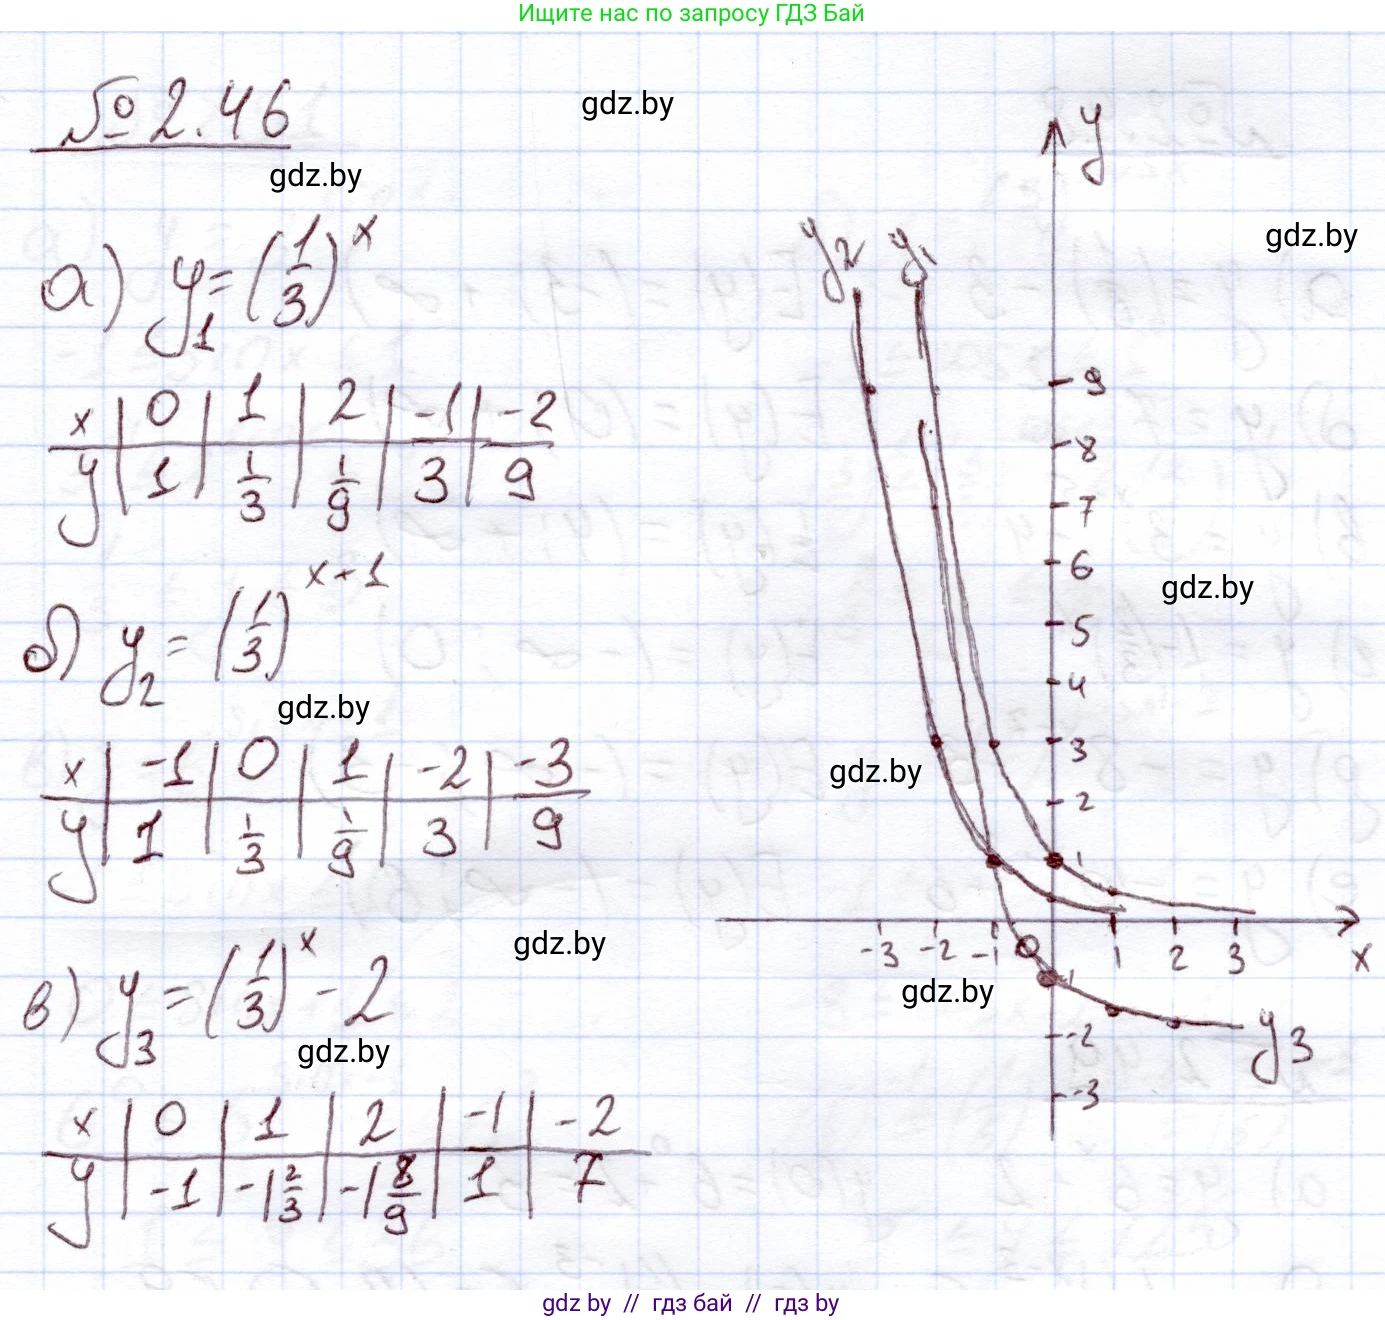 Ищите нас по запросу ГДЗ Бай
№ 2.46
gdz.by
gdz.by
gdz.by
а) y₁ = (1/3)^x
x | 0 | 1 | 2 | -1 | -2
y | 1 | 1/3 | 1/9 | 3 | 9
б) y₂ = (1/3)^x+1
gdz.by
x | -1 | 0 | 1 | -2 | -3
y | 1 | 1/3 | 1/9 | 3 | 9
gdz.by
в) y₃ = (1/3)^x - 2
gdz.by
x | 0 | 1 | 2 | -1 | -2
y | -1 | -1 2/3 | -1 8/9 | 1 | 7
y
y₂ y₁
9
8
7
6
gdz.by
5
4
3
gdz.by
2
1
-3 -2 -1 0 1 2 3 x
gdz.by
-1
-2
y₃
-3
gdz by // гдз бай // гдз by